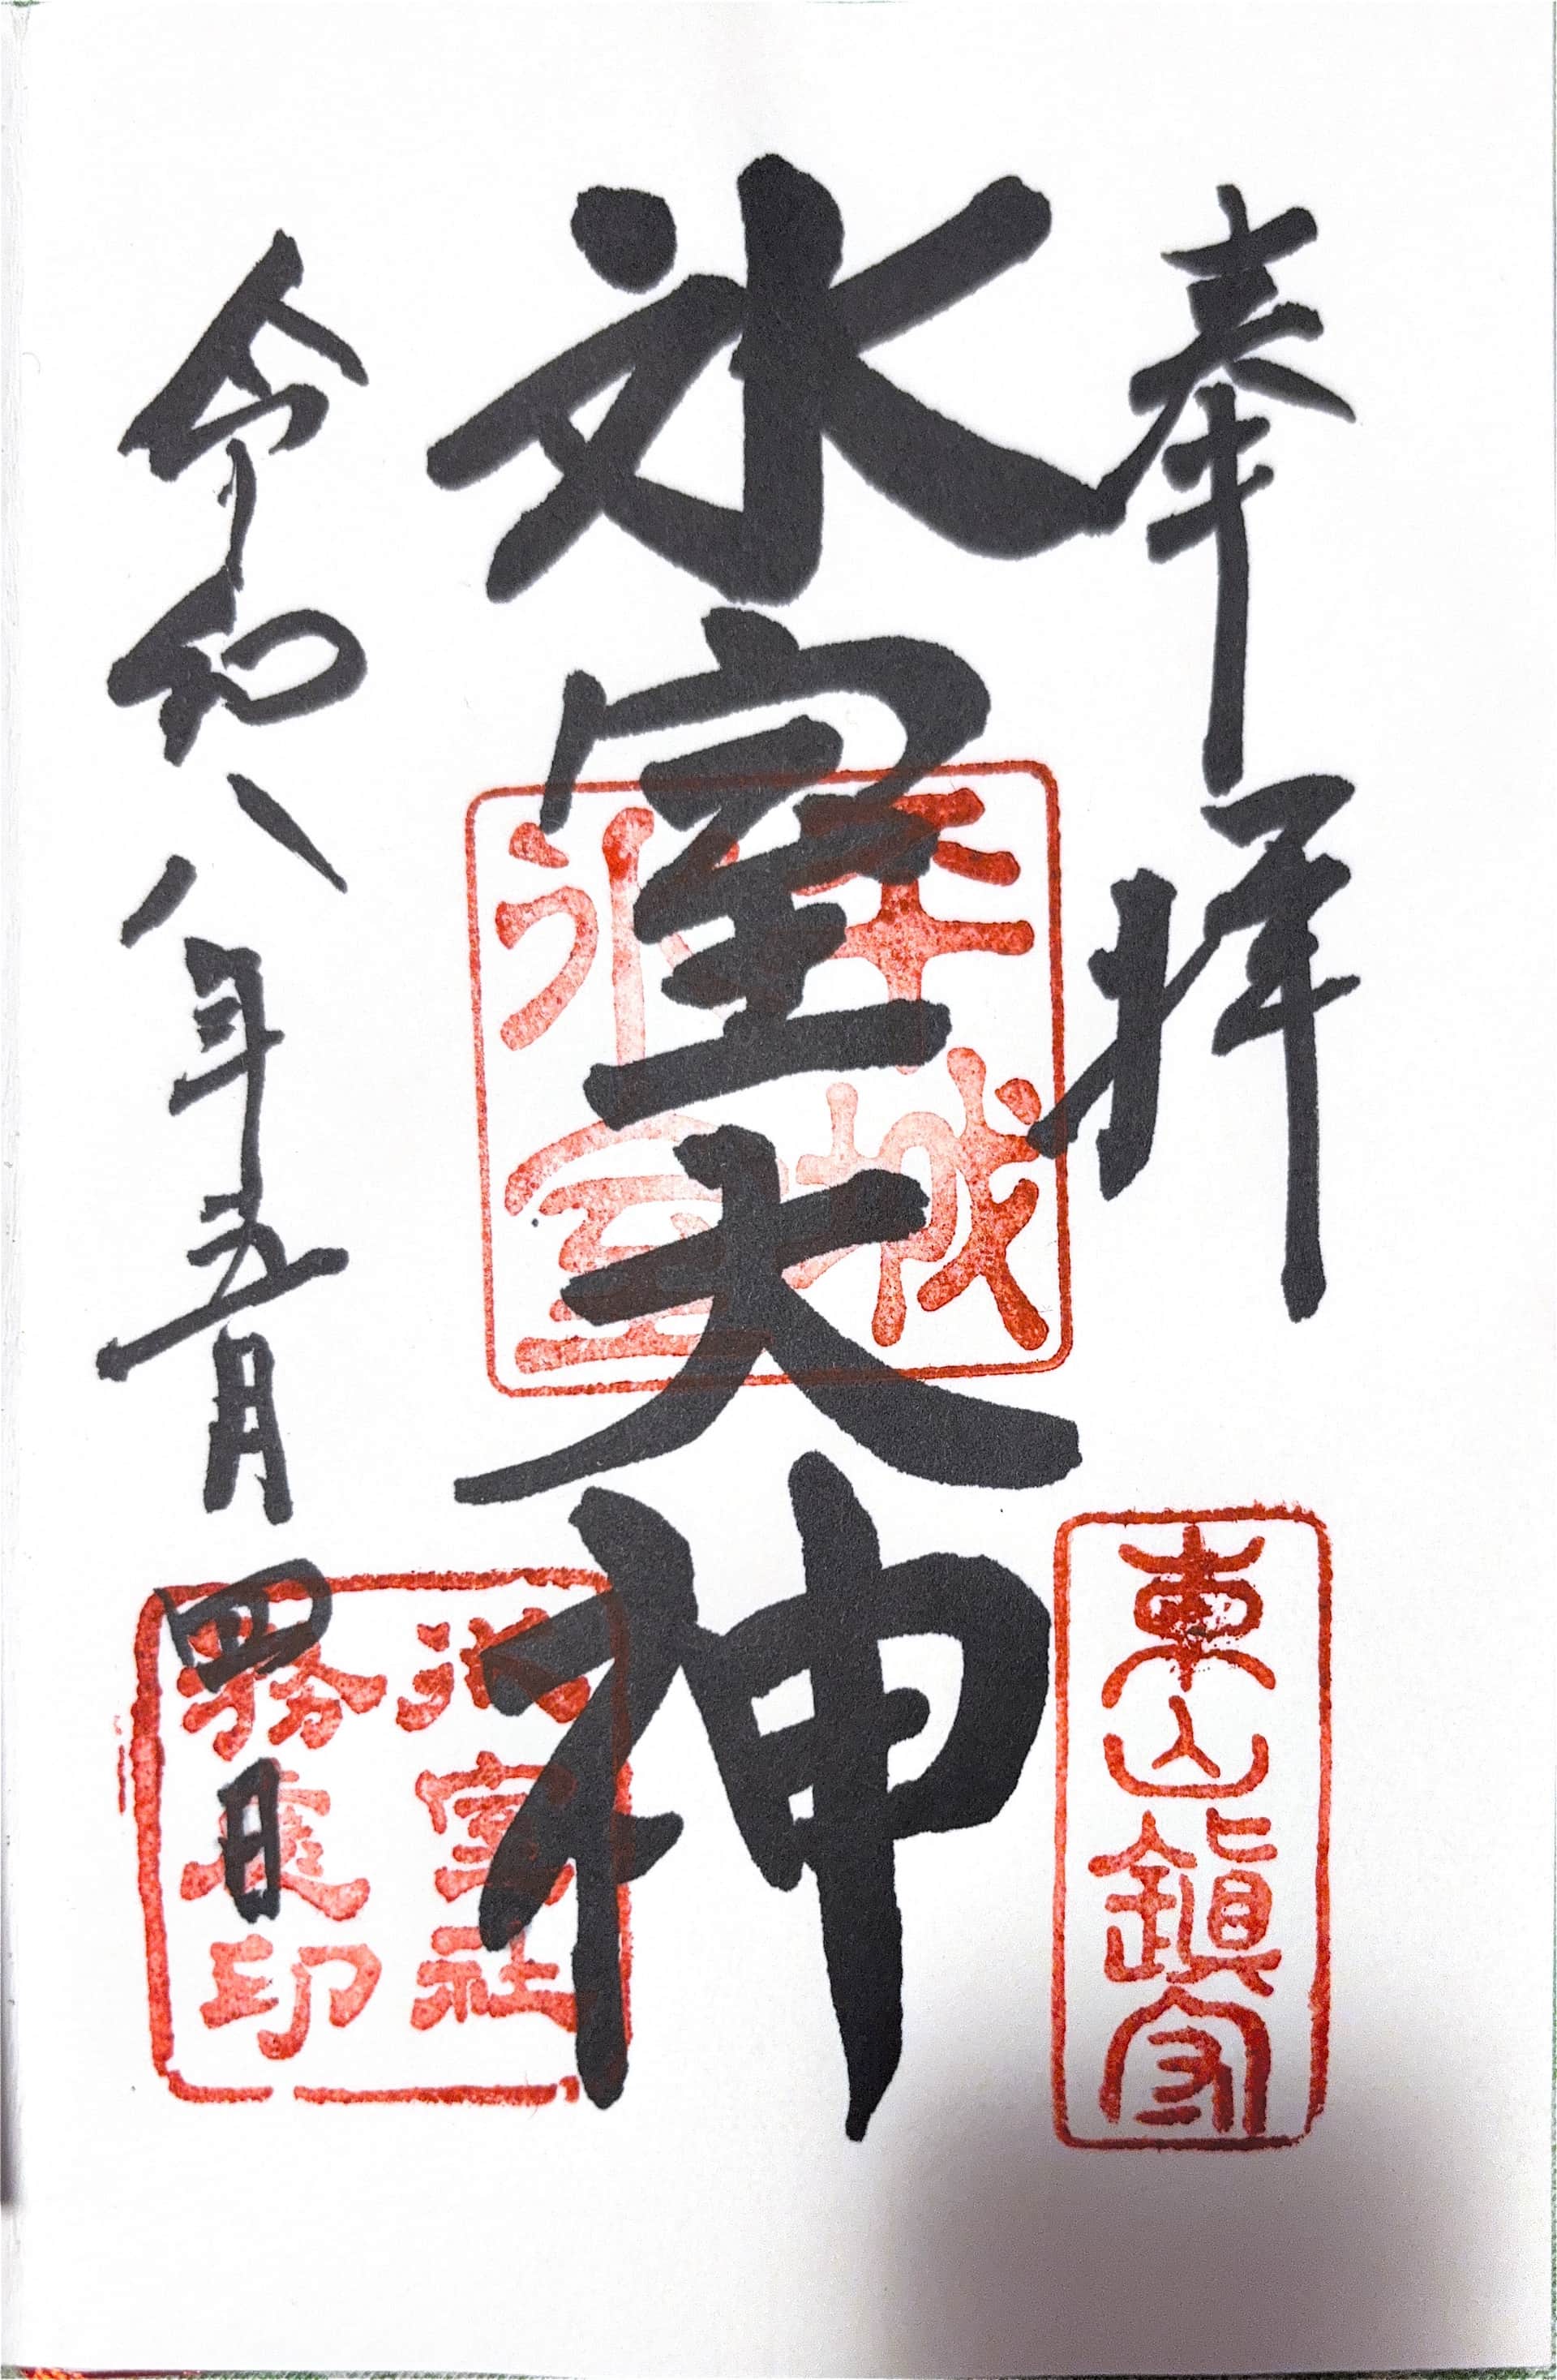 奉拝
東山鎮守
氷室大神
平城
氷室
令和八年五月四日
氷室社
務慶印